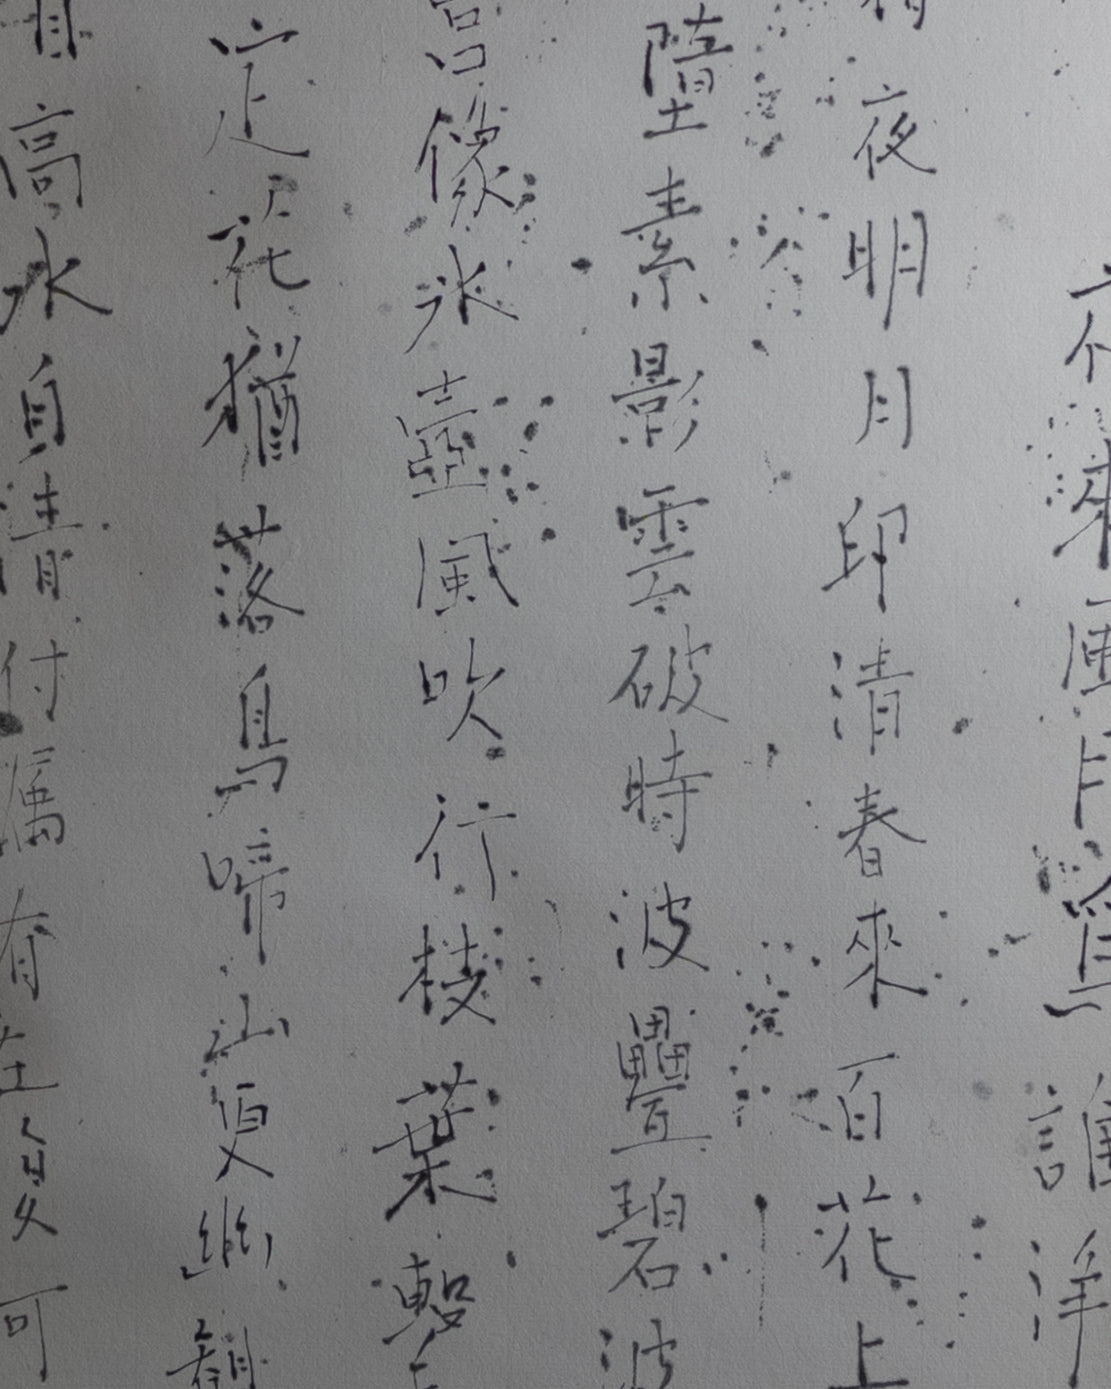 來風月
誰淨
夜明月印清春來百花上
墮素影雲破時波疊碧波
宮像冰壺風吹行枝葉
定花猶落鳥啼山更幽
高水自清付囑有在
可